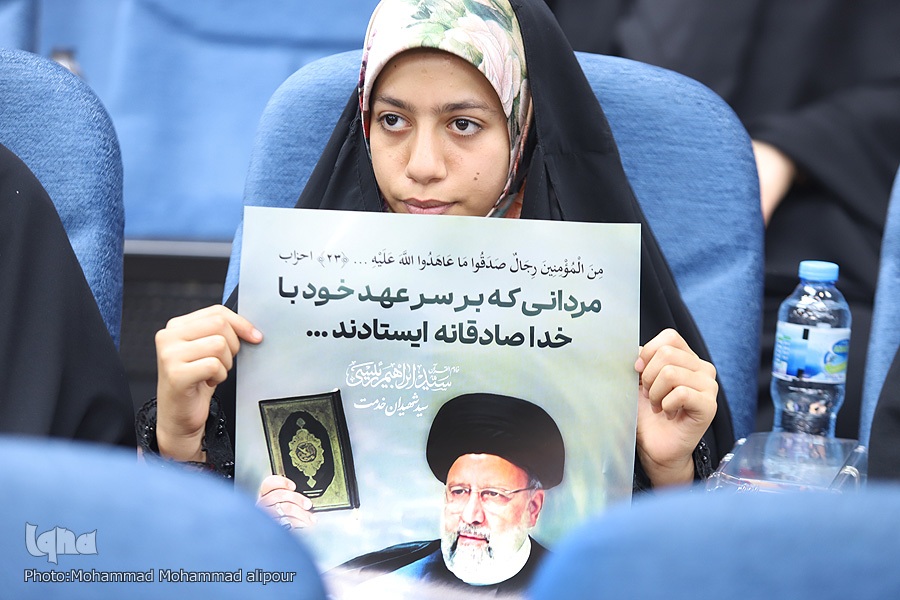 مِنَ الْمُؤْمِنِينَ رِجَالٌ صَدَقُوا مَا عَاهَدُوا اللَّهَ عَلَيْهِ ... ﴿٢٣﴾ احزاب
مردانی که بر سر عهد خود با
خدا صادقانه ایستادند ...
سید ابراهیم رئیسی
سید شهیدان خدمت
iqna
Photo:Mohammad Mohammad alipour